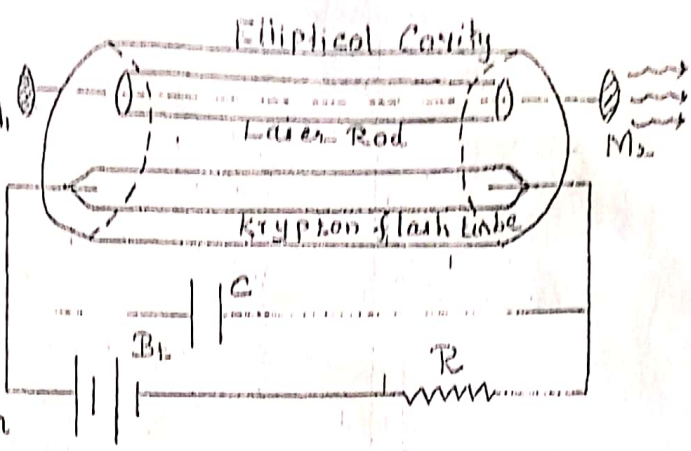 Elliptical Cavity
M₂
Laser Rod
Krypton flash tube
C
Bt
R